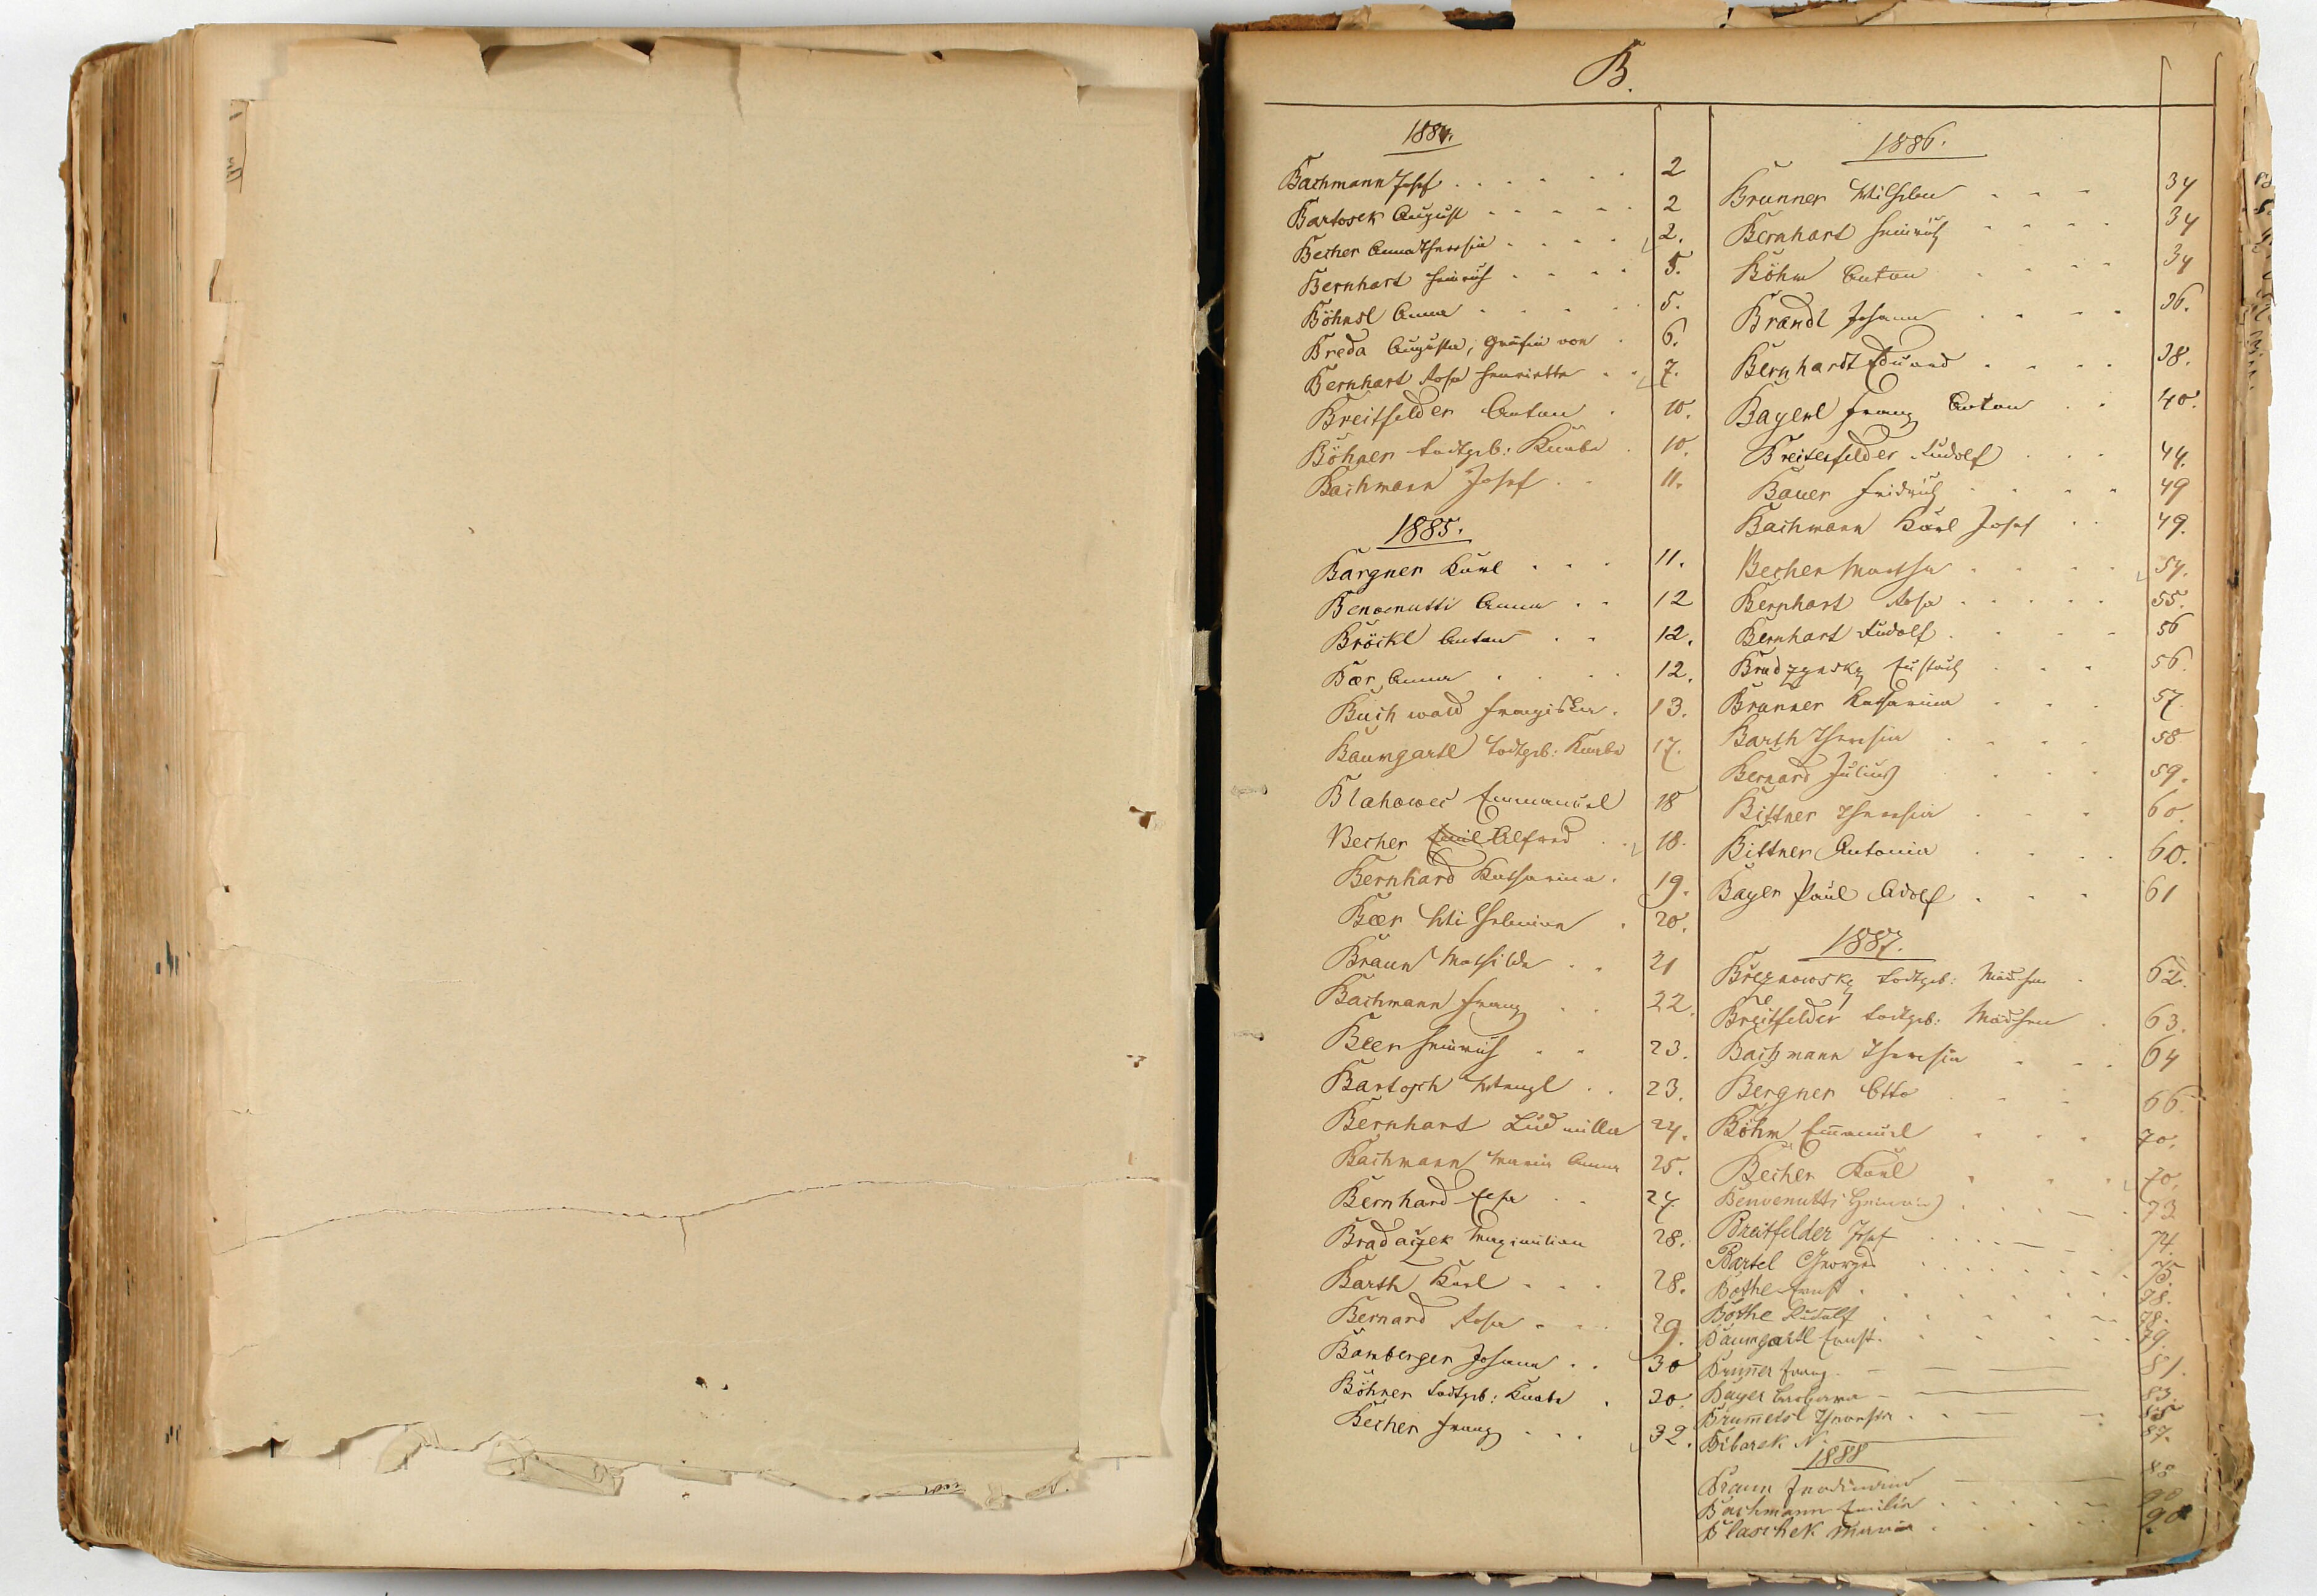 B.
1884.
Bachmann Josef 2
Bartosek August 2
Becher Anna Theresia 2.
Bernhart Heinrich 5.
Böhnsl Anna 5.
Breda Augusta, Gräfin von 6.
Bernhart Rosa Henriette 7.
Breitfelder Anton 10.
Böhner todtgeb: Knabe 10.
Bachmann Josef 11.
1885.
Bargner Karl 11.
Benvenutti Anna 12
Bröckl Anton 12.
Bær Anna 12.
Buchwald Franziska 13.
Baumgartl todtgeb: Knabe 17.
Blahowec Emmanuel 18
Becher Emil Alfred 18.
Bernhard Katharina 19.
Bær Wilhelmine 20.
Braun Mathilde 21
Bachmann Franz 22.
Beer Heinrich 23.
Bartosch Wenzl 23.
Bernhart Ludmilla 24.
Bachmann Maria Anna 25.
Bernhard 27.
Bradaczek Maximilian 28.
Barth Karl 28.
Bernard Rosa 29.
Bamberger Johann 30
Böhner todtgeb: Knabe 30.
Becher Franz 32.
1886.
Brunner Wilhelm 34
Bernhart Heinrich 34
Böhm Anton 34
Brandl Johann 36.
Bernhardt Eduard 38.
Bayerl Franz Anton 40.
Breitenfelder Rudolf 44.
Bauer Fridrich 49
Bachmann Karl Josef 49.
Becher Martha 54.
Bernhart Rosa 55.
Bernhart Rudolf 56
Brudzynsky Eustach 56.
Brunner Katharina 57.
Barth Theresia 58
Bernard Julius 59.
Bittner Theresia 60.
Bittner Antonia 60.
Bayer Paul Adolf 61
1887.
Březnowsky todtgeb: Mädchen 62.
Breitfelder todtgeb: Mädchen 63.
Bachmann Theresia 64
Bergner Otto 66.
Böhm Emanuel 70.
Becher Karl 70.
Benvenutti 73
Breitfelder Josef 74.
Bartel George 75.
Bothe Ernst 78.
Bothe Rudolf 78.
Baumgartl Ernst 79.
Brunner Franz 81.
Bayer Barbara 83.
Brummeisl Theresia 85
Bibarek N. 87.
1888
Braun Ferdinand 88
Bachmann Emilia 90
Blaschek Maria 90